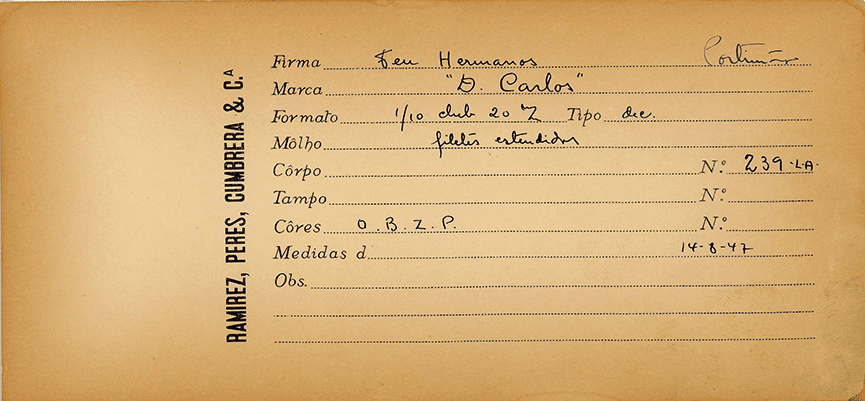 RAMIREZ, PERES, CUMBRERA & C.A
Firma Feu Hermanos Portimão
Marca "D. Carlos"
Formato 1/10 club 20 Tipo dec.
Môlho filetes estendidos
Côrpo N.º 239-L.A.
Tampo N.º
Côres O. B. Z. P. N.º
Medidas d 14-8-47
Obs.